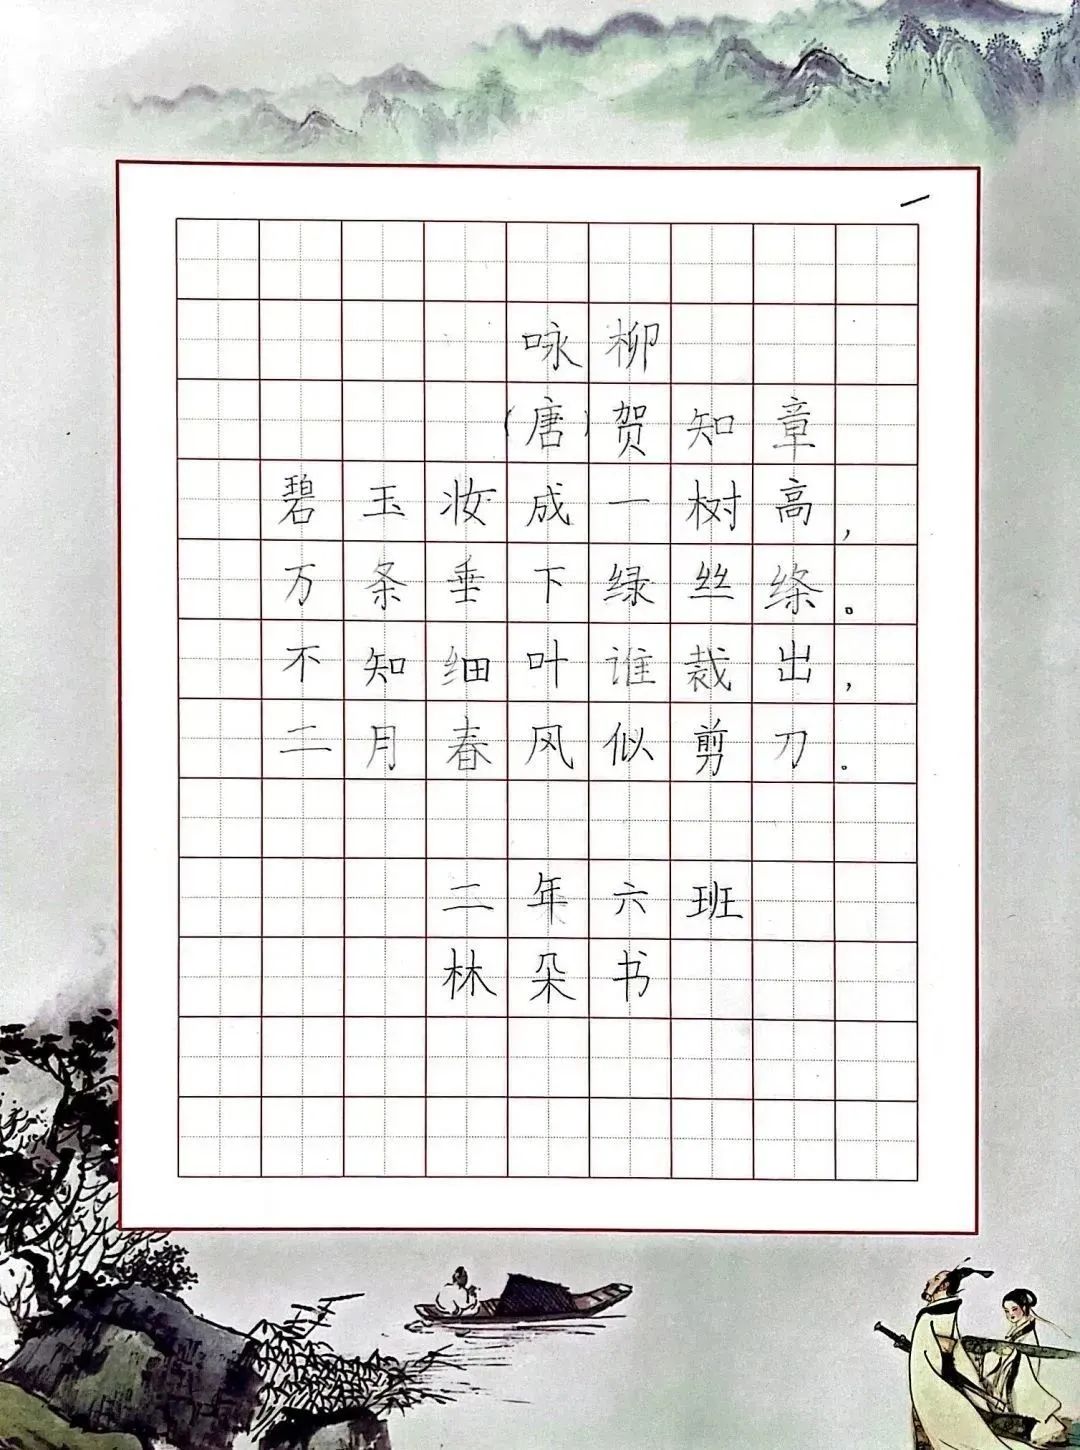 一
咏柳
(唐)贺知章
碧玉妆成一树高,
万条垂下绿丝绦。
不知细叶谁裁出,
二月春风似剪刀。
二年六班
林朵书